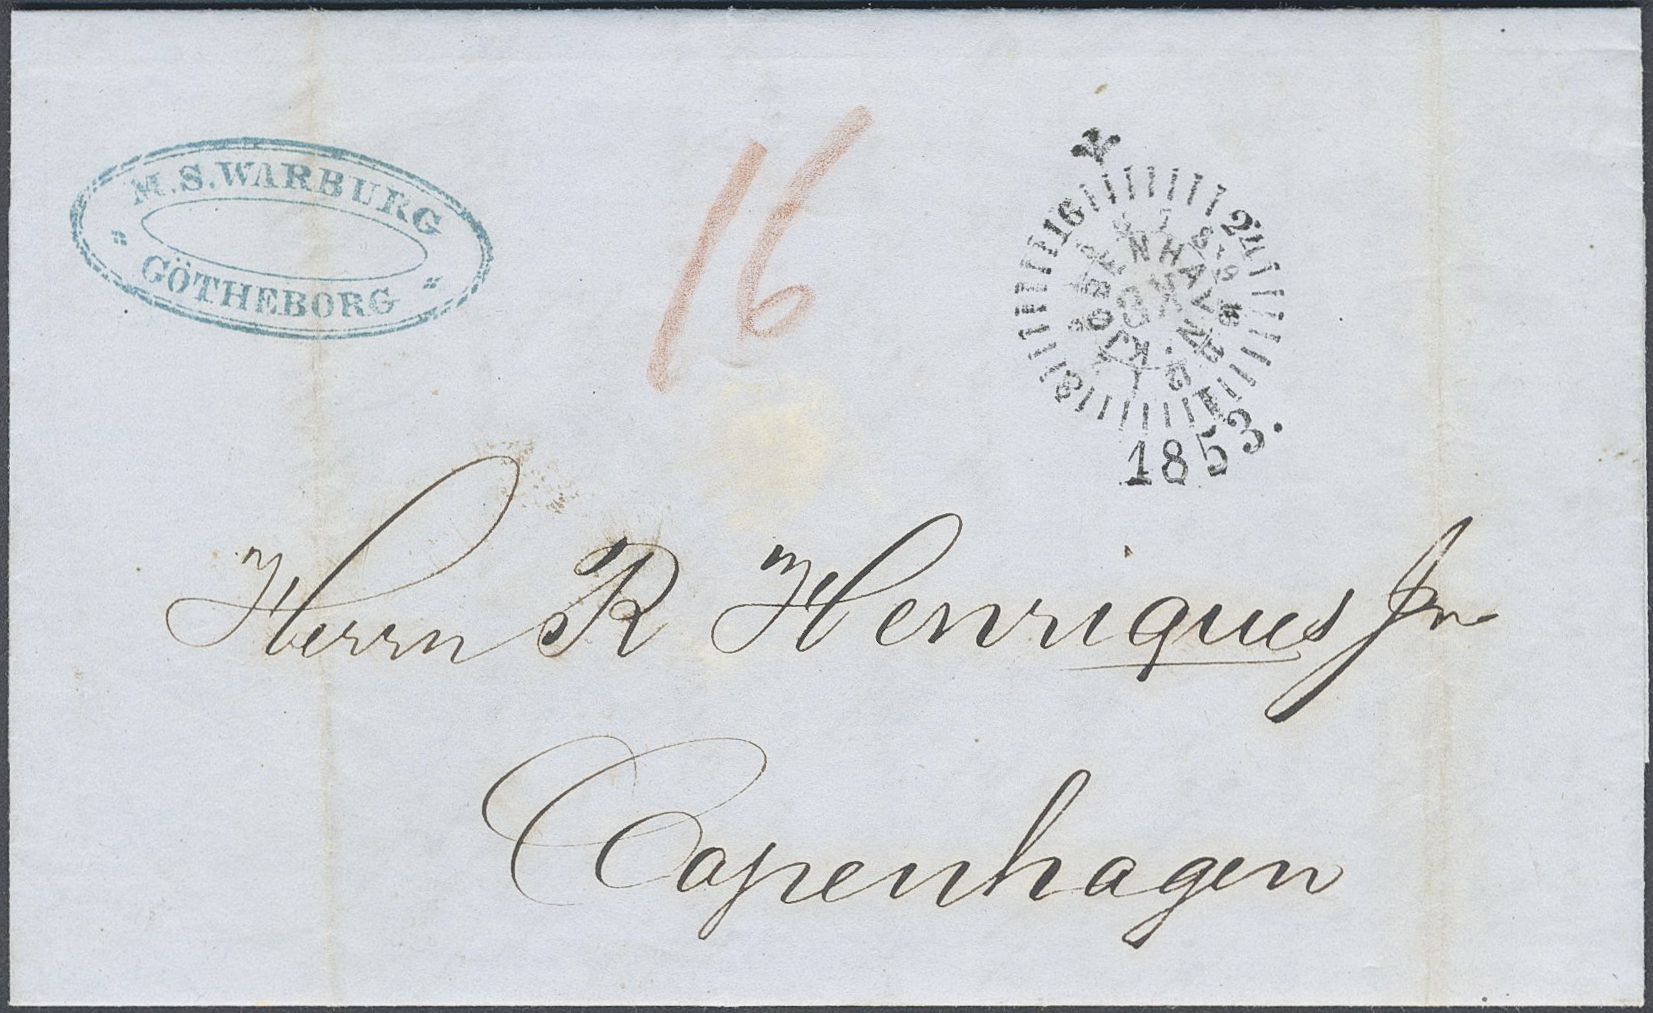 M.S.WARBURG
GÖTHEBORG
16
16 24
8
1853.
Herrn R Henriques Jr
Copenhagen